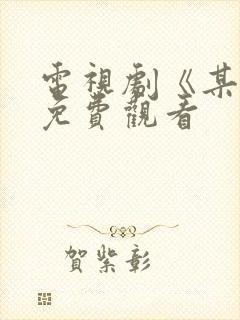 電視劇《某
免費觀看
賀紫彰